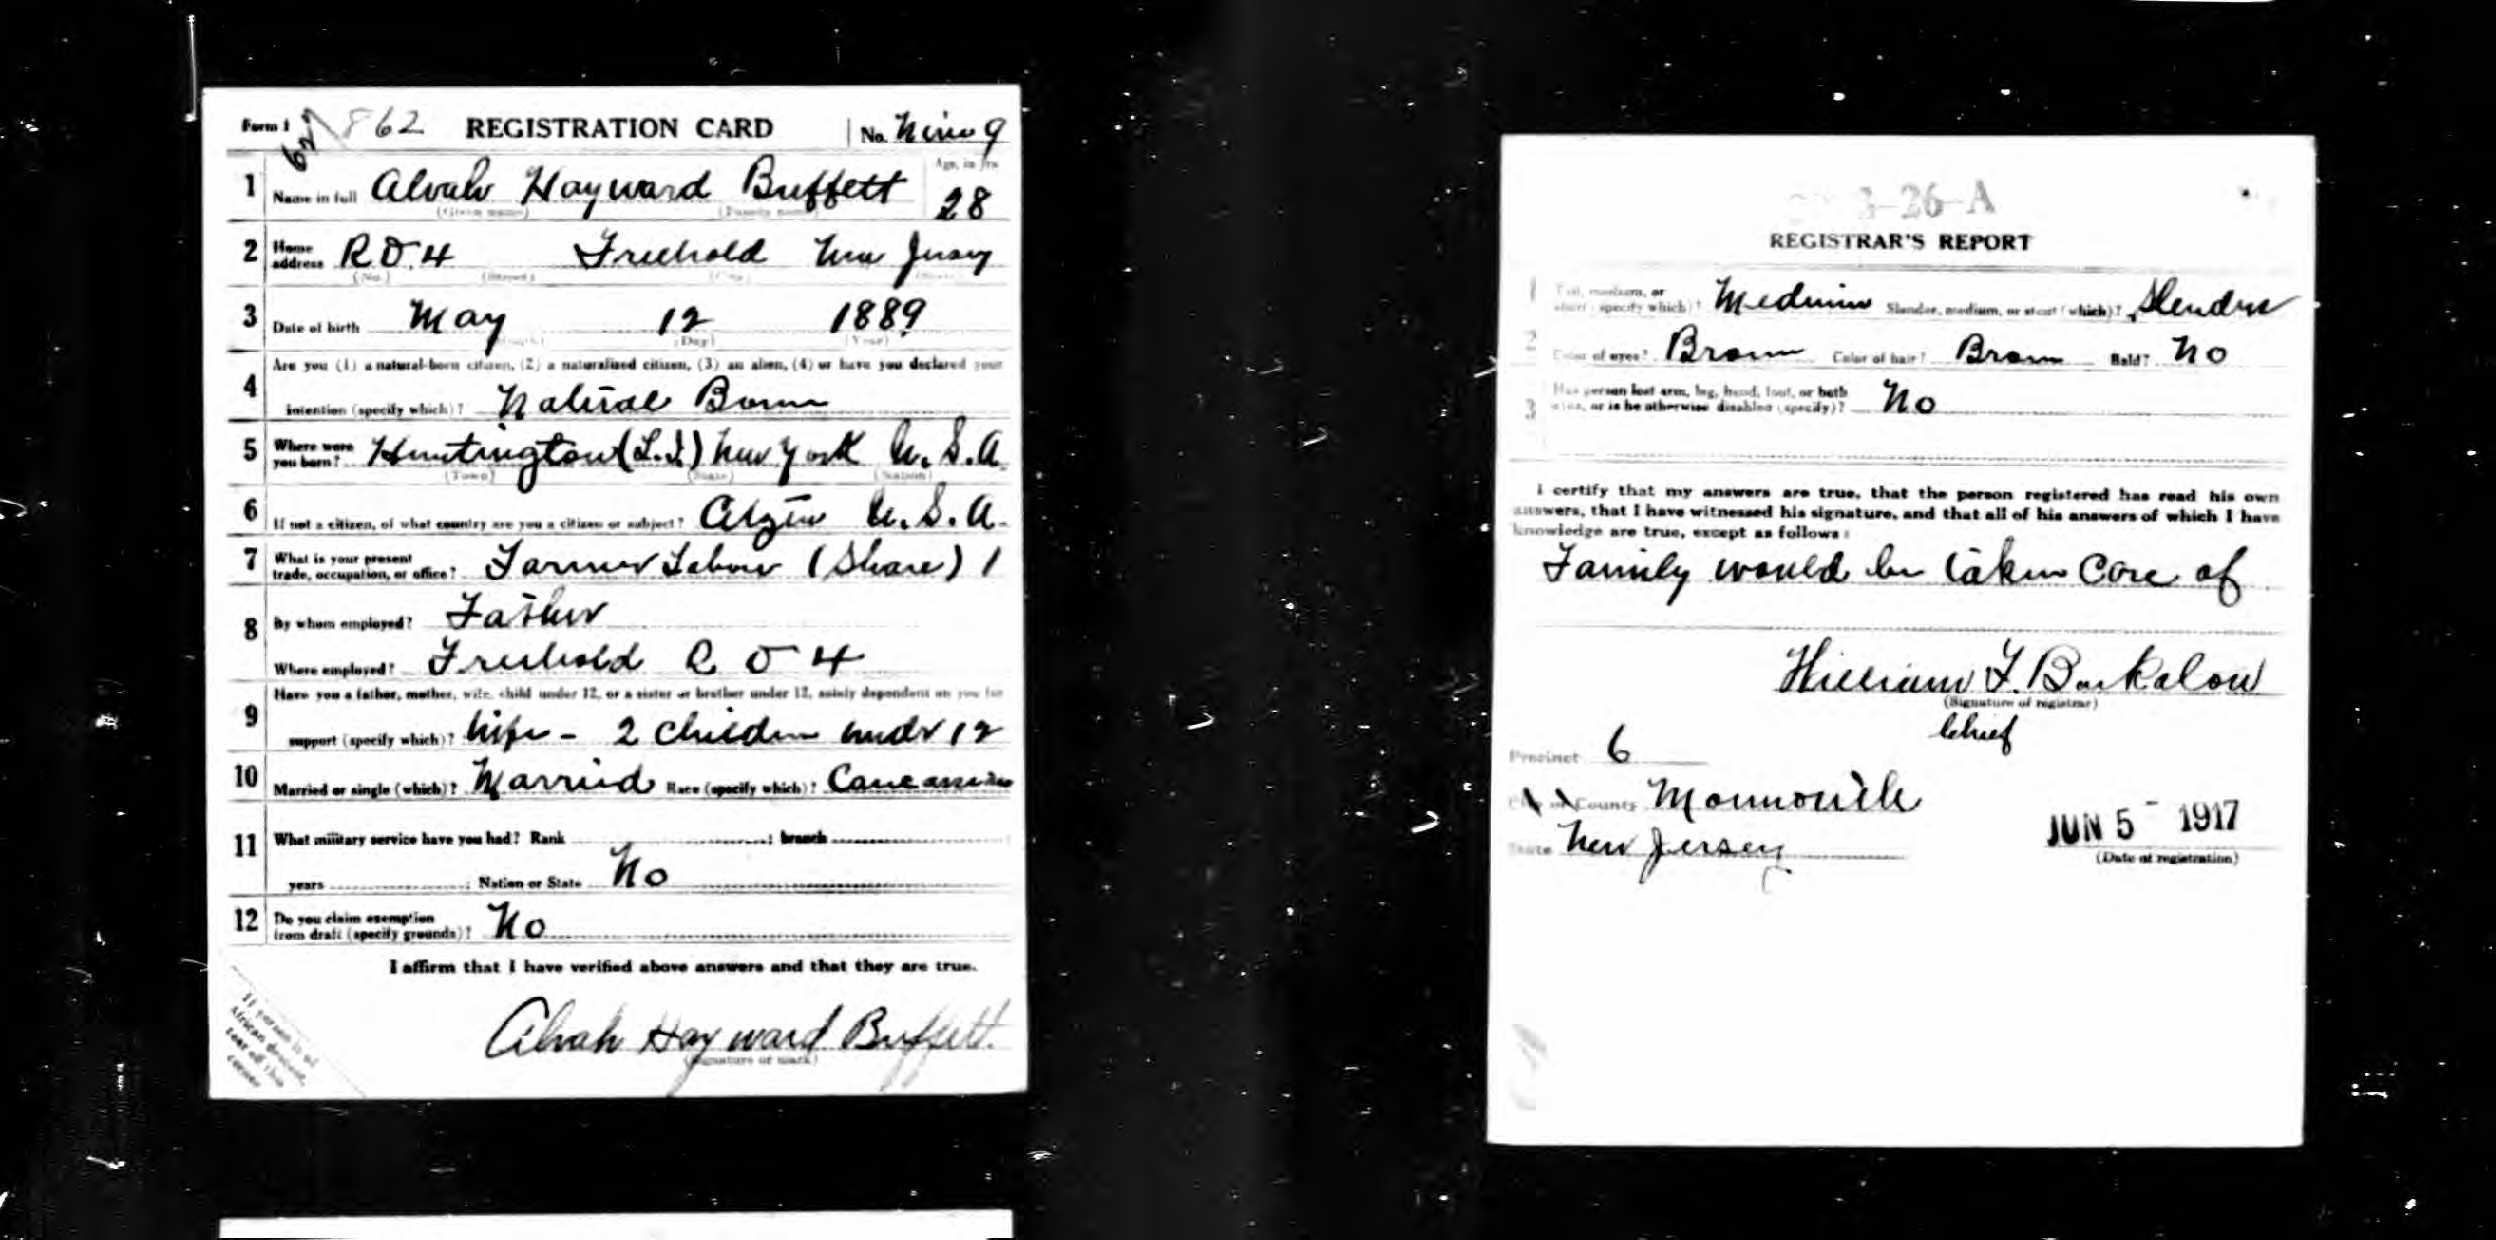 Form 1 627 862 REGISTRATION CARD No. Nine 9
1 Name in full Alvah Hayward Buffett Age, in yrs 28
(Given name) (Family name)
2 Home address R D 4 Freehold New Jersey
(No.) (Street) (City) (State)
3 Date of birth May 12 1889
(Month) (Day) (Year)
4 Are you (1) a natural-born citizen, (2) a naturalized citizen, (3) an alien, (4) or have you declared your
intention (specify which)? Natural Born
5 Where were you born? Huntington (L.I.) New York U.S.A
(Town) (State) (Nation)
6 If not a citizen, of what country are you a citizen or subject? Citizen U.S.A.
7 What is your present
trade, occupation, or office? Farmer Labor (Share) 1
8 By whom employed? Father
Where employed? Freehold R D 4
9 Have you a father, mother, wife, child under 12, or a sister or brother under 12, solely dependent on you for
support (specify which)? Wife - 2 Children under 12
10 Married or single (which)? Married Race (specify which)? Caucasian
11 What military service have you had? Rank ; branch
years ; Nation or State No
12 Do you claim exemption
from draft (specify grounds)? No
I affirm that I have verified above answers and that they are true.
Alvah Hayward Buffett.
(Signature or mark)
If person is of
African descent,
tear off this
corner
3-26-A
REGISTRAR'S REPORT
1 Tall, medium, or
short (specify which)? Medium Slender, medium, or stout (which)? Slender
2 Color of eyes? Brown Color of hair? Brown Bald? No
3 Has person lost arm, leg, hand, foot, or both
eyes, or is he otherwise disabled (specify)? No
I certify that my answers are true, that the person registered has read his own
answers, that I have witnessed his signature, and that all of his answers of which I have
knowledge are true, except as follows:
Family would be taken Care of
William F. Burkalow
(Signature of registrar)
Chief
Precinct 6
City or County Monmouth
State New Jersey
JUN 5 - 1917
(Date of registration)